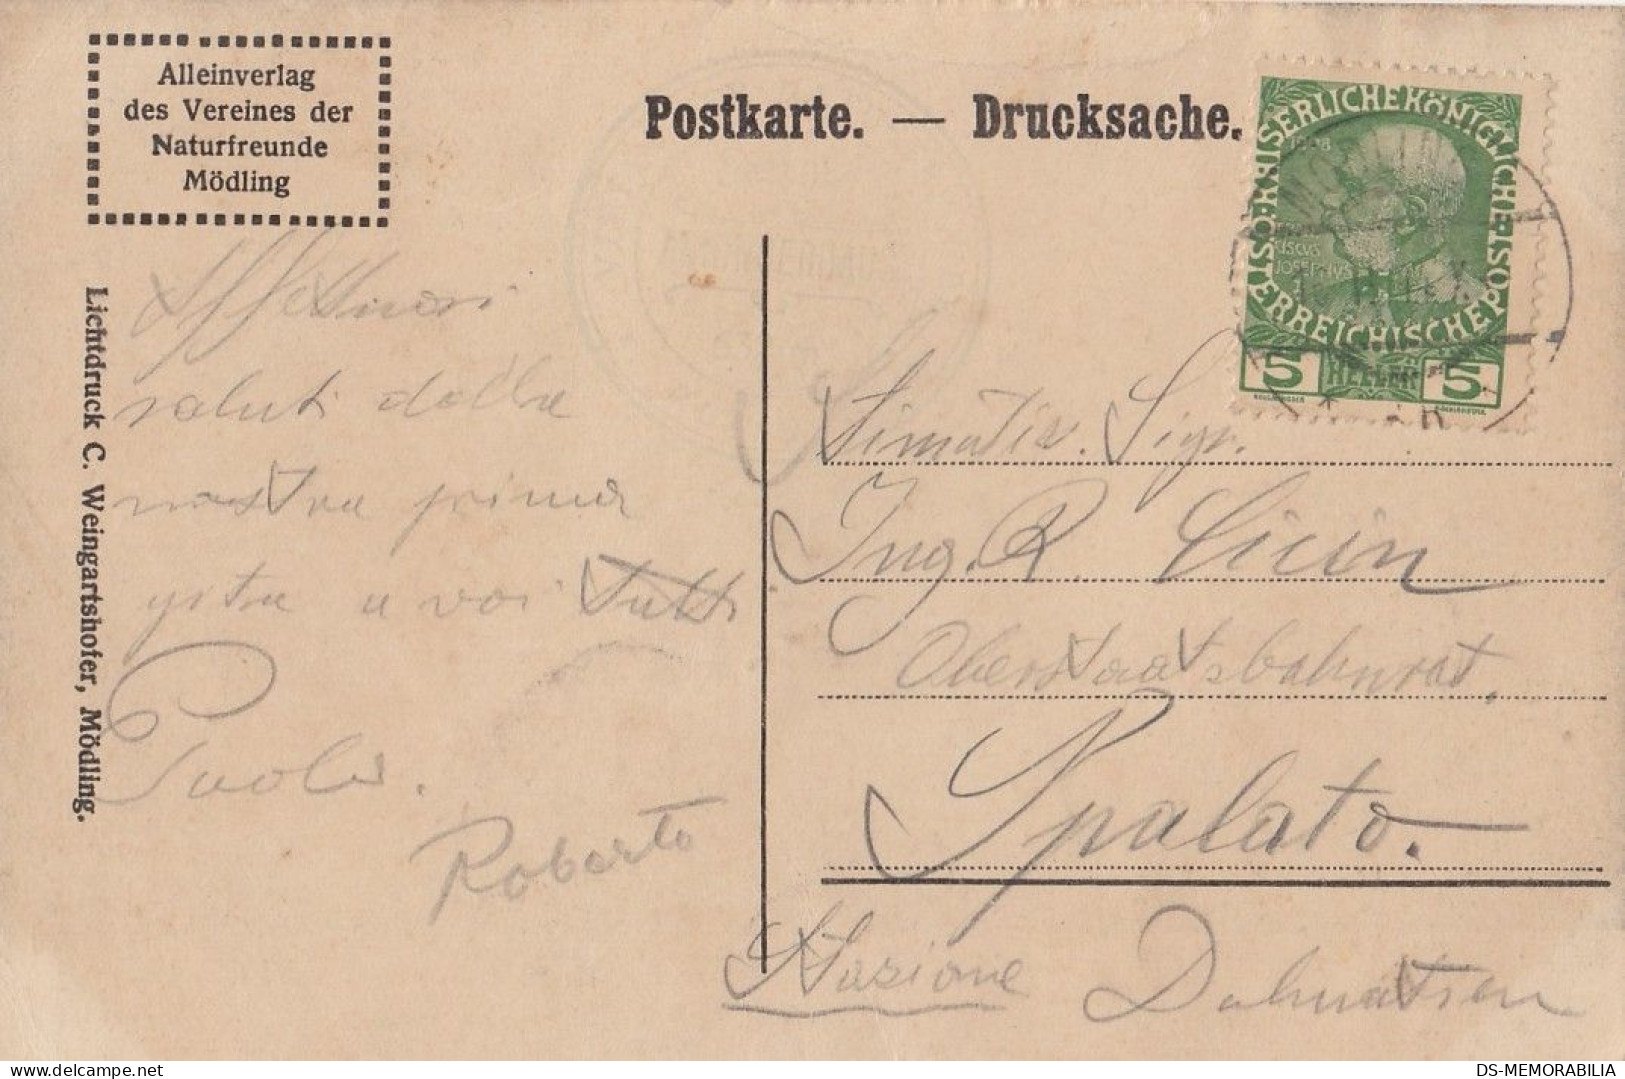 Alleinverlag
des Vereines der
Naturfreunde
Mödling
Postkarte. — Drucksache.
KAISERLICHE KÖNIGLICHE
ÖSTERREICHISCHE POST
1908
JOSEPHUS
5 HELLER 5
Lichtdruck C. Weingartshofer, Mödling.
Affettuosi
saluti dalla
nostra prima
gita a voi tutti
Paola.
Roberto
Stimatis. Sigr.
Ing. R. Cicin
Oberstaatsbahnrat,
Spalato.
Stazione Dalmatien
DS-MEMORABILIA